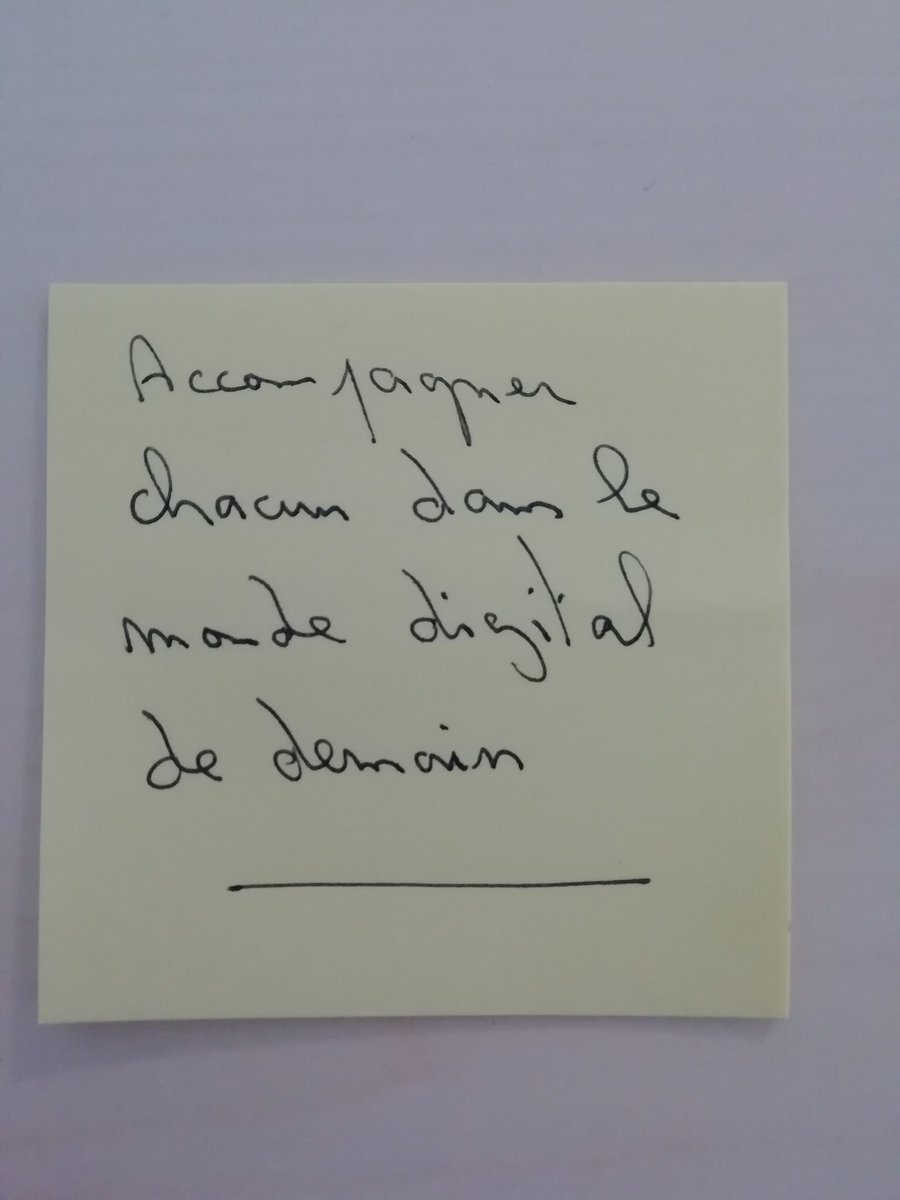 Accompagner
chacun dans le
monde digital
de demain